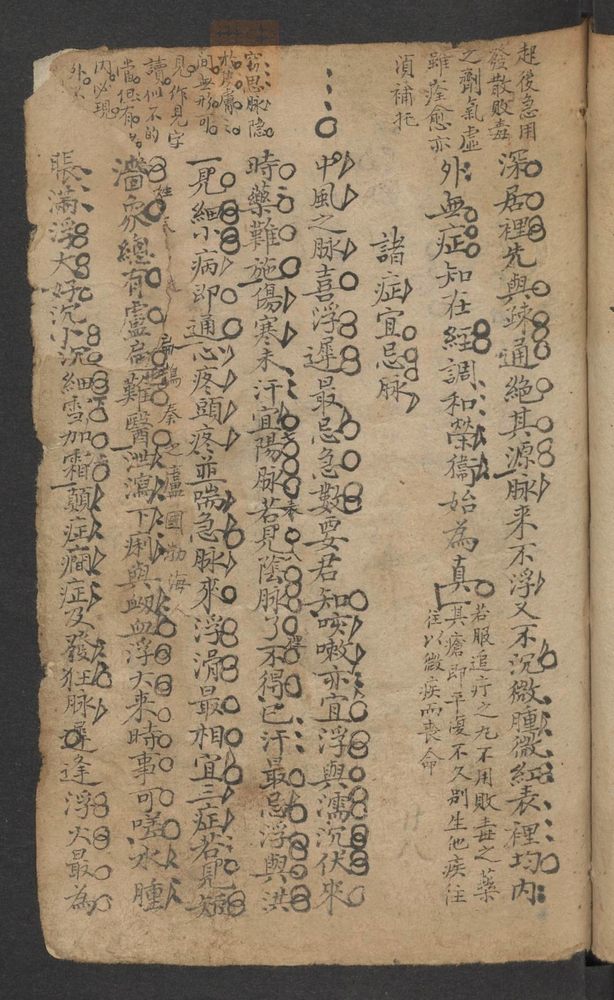 起後急用
發散敗毒
之劑氣虛
雖痊愈亦
須補托
深居裡先與疎通絕其源脉来不浮又不沉微腫微紅表裡均内
外無症知在經調和榮衛始為真
若服追疔之丸不用敗毒之藥
其瘡即平復不久別生他疾往
往以微疾而喪命
諸症宜忌脉
中風之脉喜浮遲最忌急數要君知咳嗽亦宜浮與濡沉伏來
時藥難施傷寒未汗宜陽脉若見陰脉了不得已汗最忌浮與洪
一見細小病即通心疼頭疼並喘急脉來浮滑最相宜三症若見短
濇象總有盧扁難醫泄瀉下痢與衂血浮大来時事可嗟水腫
脹滿浮大好沉小沉細雪加霜顛症癎症及發狂脉遲逢浮大最為
竊思脉隐
於皮膚之
間無形可
見作見字
讀似不的
當但有
内必現
外
姓秦
扁鵲秦之盧國渤海人
廿八